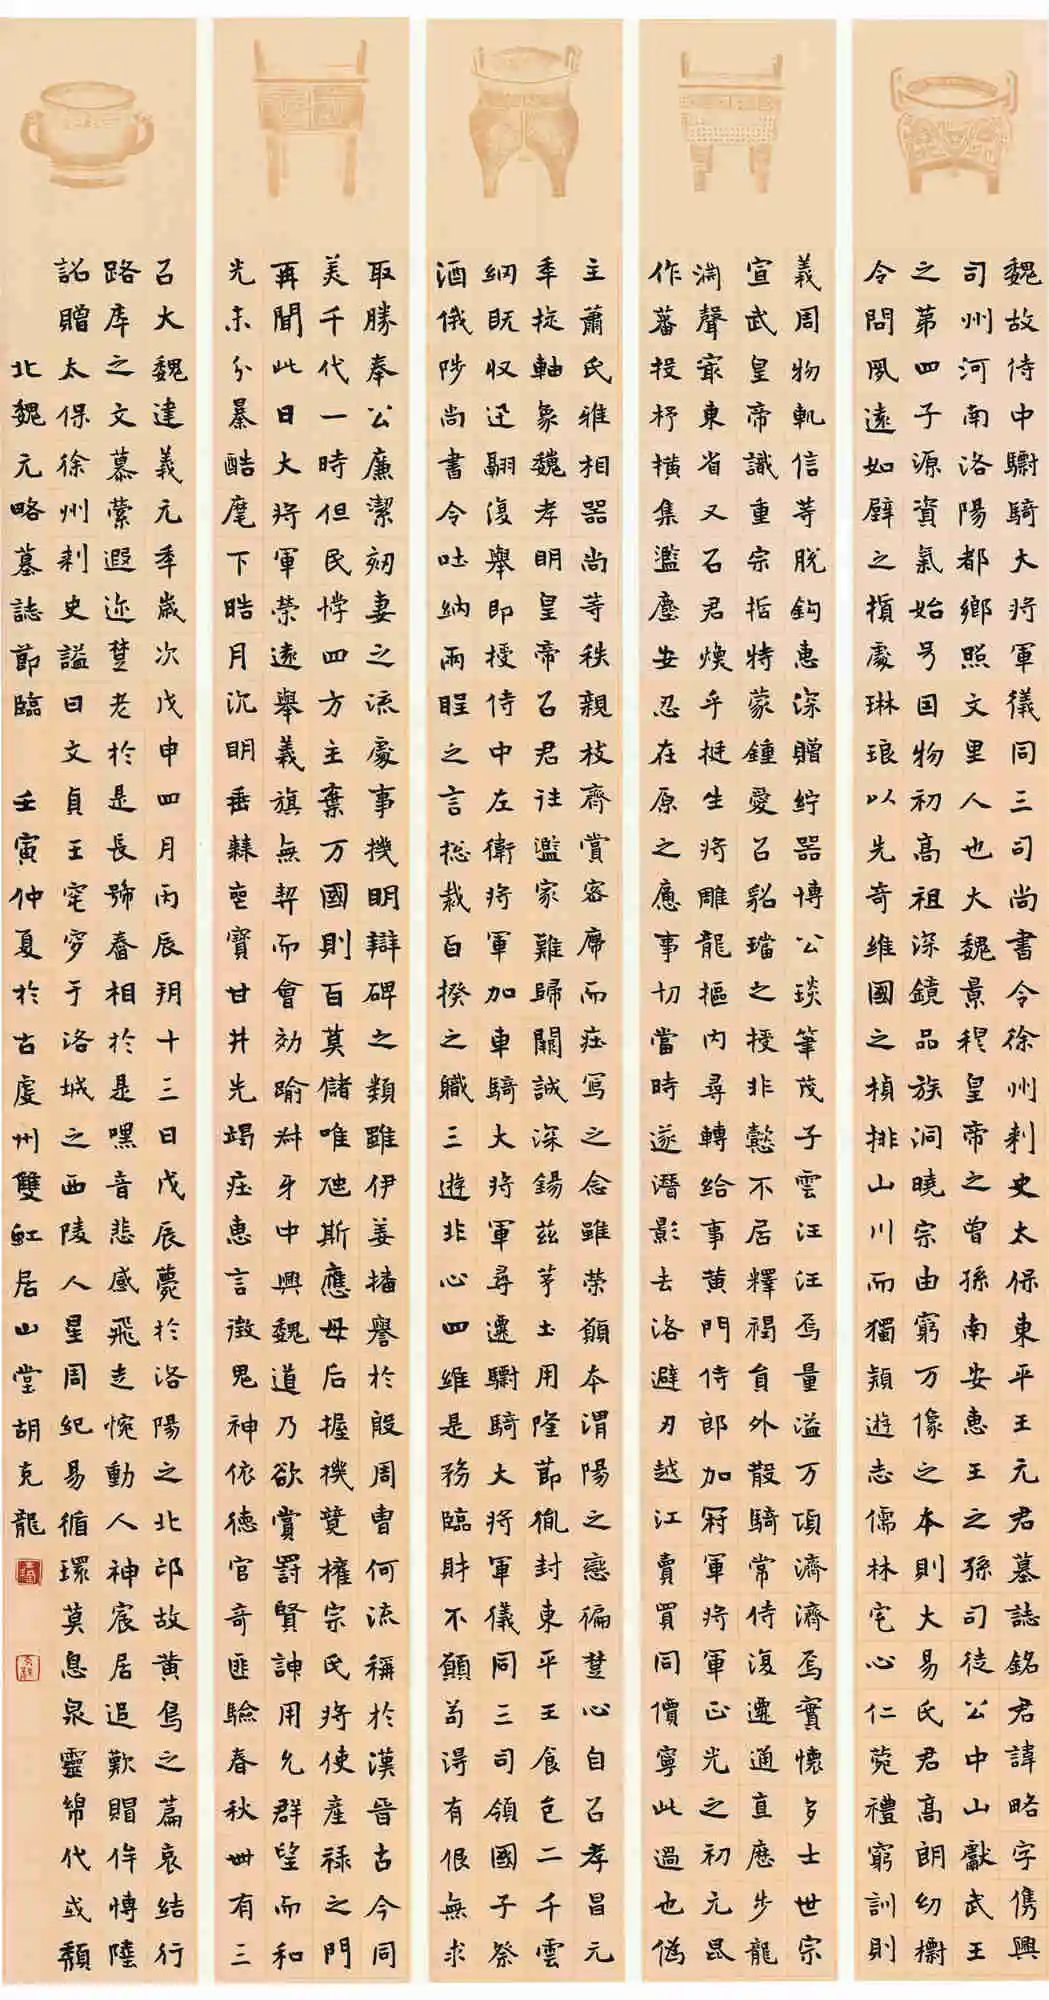 魏故侍中驃騎大將軍儀同三司尚書令徐州刺史太保東平王元君墓誌銘君諱略字儁興
司州河南洛陽都鄉照文里人也大魏景穆皇帝之曾孫南安惠王之孫司徒公中山獻武王
之苐四子源資氣始号国物初高祖深鏡品族洞曉宗由窮万像之本則大易氏君高朗幼
令問夙遠如璧之損處琳琅以先奇維國之楨排山川而獨穎遊志儒林宅心仁菀禮窮訓則
義周物軌信等脫鈎惠深贈紵器博公琰筆茂子雲汪汪焉量溢万頃濟濟焉實懷多士世宗
宣武皇帝識重宗哲特蒙鍾愛召貂璫之授非懿不居釋褐員外散騎常侍復遷通直應步龍
渊聲寂東省又石君煥乎挺生將雕龍樞內尋轉給事黃門侍郎加冠軍將軍正光之初元昆
作蕃投杼橫集濫塵安忍在原之應事切當時遂潛影去洛避刃越江賣買同價寧此過也偽
主蕭氏雅相器尚等秩親枝齊賞客席而莊寫之念雖榮願本渭陽之戀偏楚心自召孝昌元
季旋軸象魏孝明皇帝召君往濫家難歸闕誠深錫茲茅土用隆節胤封東平王食邑二千雲
納既收迅翮復舉即授侍中左衛將軍加車騎大將軍尋遷驃騎大將軍儀同三司領國子祭
酒俄陟尚書令吐納兩程之言揔裁百揆之職三遊非心四維是務臨財不願苟得有恨無求
取勝奉公廉潔妻之流處事機明辯碑之類雖伊姜播譽於殷周曹何流稱於漢晉古今同
美千代一時但民悖四方主棄万國則百莫儲唯虺斯應毋后握機競權宗民將使產祿之門
再聞此日大將軍榮遠舉義旗無契而會効踰叔牙中興魏道乃欲賞罸賢訷用允群望而和
光未分暴酷麾下晧月沉明垂棘喪寶甘井先竭莊惠言徵鬼神依德官奇匪驗春秋卌有三
召大魏建義元季歲次戊申四月丙辰朔十三日戊辰薨於洛陽之北邙故黃鳥之篇哀結行
路庫之文慕縈遐迩楚老於是長號舂相於是嘿音悲感飛走惋動人神宸居追歎賵侔愽陸
詔贈太保徐州刺史謚曰文貞王窀穸于洛城之西陵人星周紀易循環莫息泉靈綿代或頹
北魏元略墓誌節臨 壬寅仲夏於古虔州雙虹居山堂胡克龍